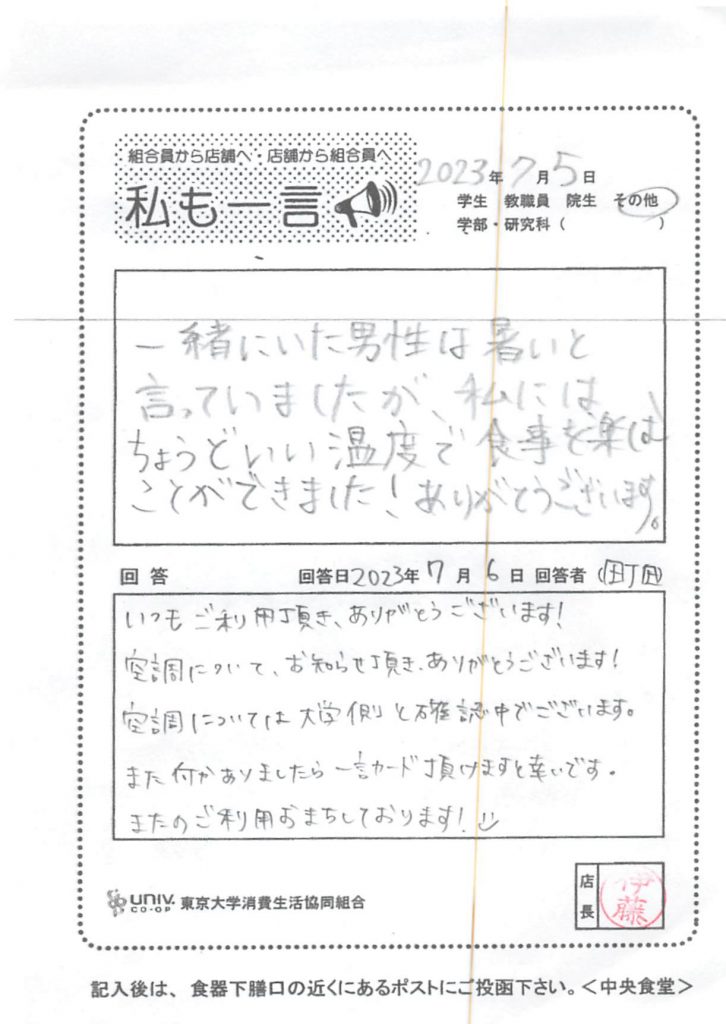 組合員から店舗へ・店舗から組合員へ
私も一言
2023年7月5日
学生 教職員 院生 その他
学部・研究科( )
一緒にいた男性は暑いと
言っていましたが、私には
ちょうどいい温度で食事を楽しむ
ことができました!ありがとうございます。
回答 回答日2023年7月6日 回答者
いつもご利用頂き、ありがとうございます!
空調について、お知らせ頂き、ありがとうございます!
空調については大学側と確認中でございます。
また何かありましたら一言カード頂けますと幸いです。
またのご利用おまちしております!
UNIV. CO-OP 東京大学消費生活協同組合
店長 伊藤
記入後は、食器下膳口の近くにあるポストにご投函下さい。<中央食堂>